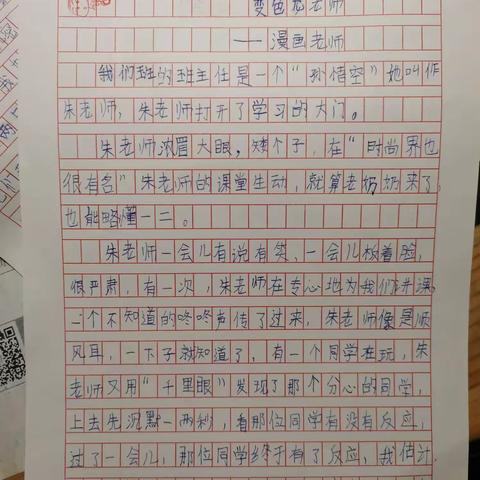 变色龙老师
——漫画老师
我们班的班主任是一个“孙悟空”她叫作
朱老师，朱老师打开了学习的大门。
朱老师浓眉大眼，矮个子，在“时尚界也
很有名”朱老师的课堂生动，就算老奶奶来了，
也能略懂一二。
朱老师一会儿有说有笑，一会儿板着脸，
很严肃，有一次，朱老师在专心地为我们讲课，
一个不知道的咚咚声传了过来，朱老师像是顺
风耳，一下子就知道了，有一个同学在玩，朱
老师又用“千里眼”发现了那个分心的同学，
上去先沉默一两秒，看那位同学有没有反应，
过了一会儿，那位同学终于有了反应，我估计